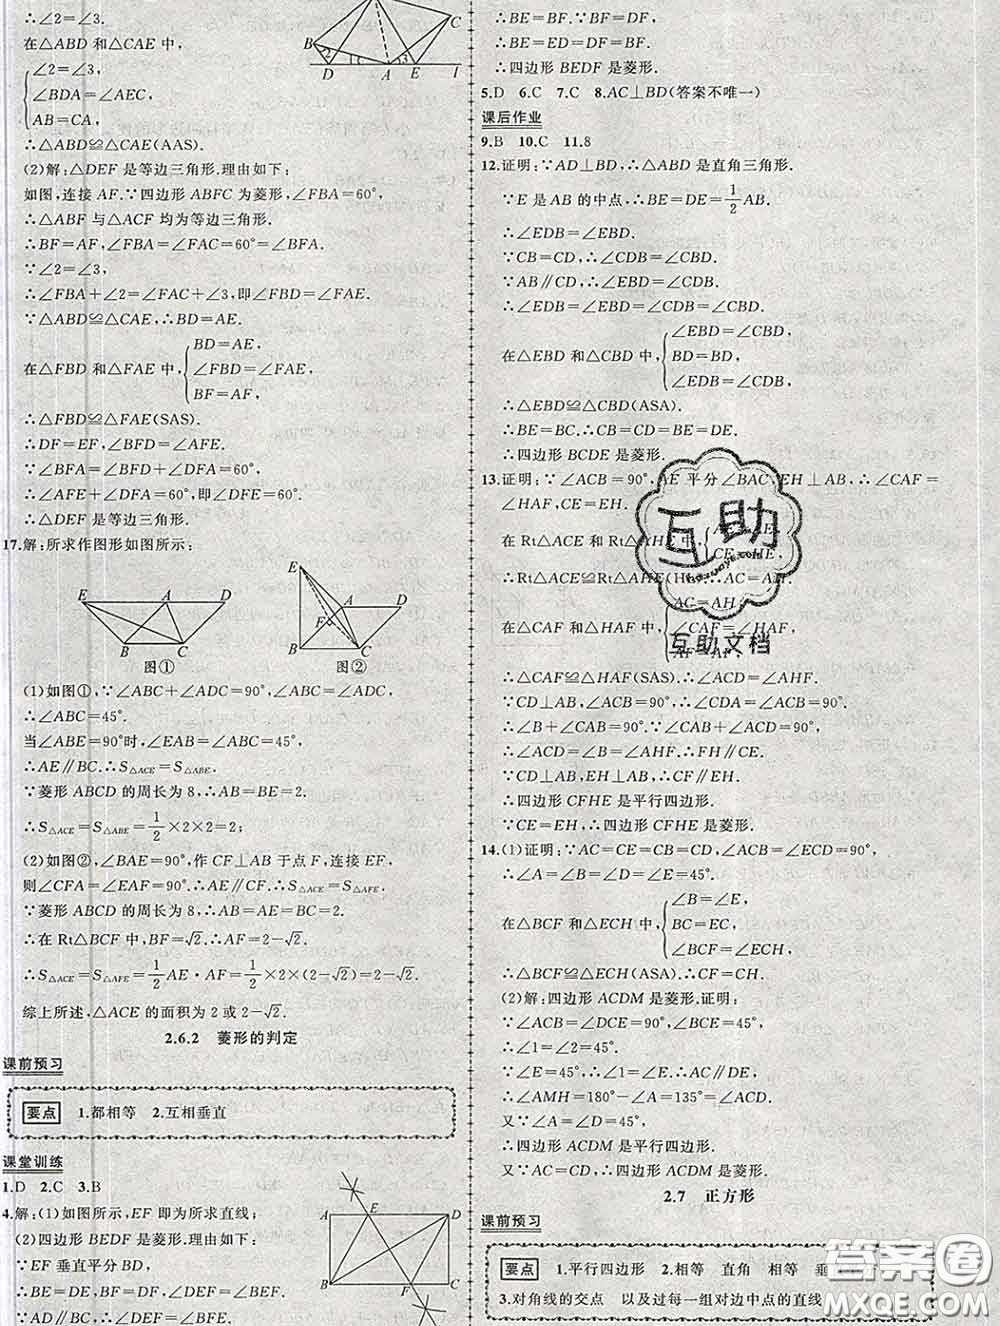 ∴∠2=∠3.
在△ABD 和△CAE 中,
∠2=∠3,
∠BDA=∠AEC,
AB=CA,
∴△ABD≌△CAE(AAS).
(2)解:△DEF 是等边三角形.理由如下:
如图,连接 AF.∵四边形 ABFC 为菱形,∠FBA=60°,
∴△ABF 与△ACF 均为等边三角形.
∴BF=AF,∠FBA=∠FAC=60°=∠BFA.
∵∠2=∠3,
∴∠FBA+∠2=∠FAC+∠3,即∠FBD=∠FAE.
∵△ABD≌△CAE,∴BD=AE.
在△FBD 和△FAE 中,
BD=AE,
∠FBD=∠FAE,
BF=AF,
∴△FBD≌△FAE(SAS).
∴DF=EF,∠BFD=∠AFE.
∵∠BFA=∠BFD+∠DFA=60°,
∴∠AFE+∠DFA=60°,即∠DFE=60°.
∴△DEF 是等边三角形.
17.解:所求作图形如图所示:
图① 图②
(1)如图①,∵∠ABC+∠ADC=90°,∠ABC=∠ADC,
∴∠ABC=45°.
当∠ABE=90°时,∠EAB=∠ABC=45°,
∴AE∥BC.∴S△ACE=S△ABE.
∵菱形 ABCD 的周长为 8,∴AB=BE=2.
∴S△ACE=S△ABE=1/2×2×2=2;
(2)如图②,∠BAE=90°,作 CF⊥AB 于点 F,连接 EF,
则∠CFA=∠EAF=90°.∴AE∥CF.∴S△ACE=S△AFE.
∵菱形 ABCD 的周长为 8,∴AB=AE=BC=2.
∴在 Rt△BCF 中,BF=√2.∴AF=2−√2.
∴S△ACE=S△AFE=1/2AE·AF=1/2×2×(2−√2)=2−√2.
综上所述,△ACE 的面积为 2 或 2−√2.
2.6.2 菱形的判定
课前预习
要点 1.都相等 2.互相垂直
课堂训练
1.D 2.C 3.B
4.解:(1)如图所示,EF 即为所求直线;
(2)四边形 BEDF 是菱形.理由如下:
∵EF 垂直平分 BD,
∴BE=DE,BF=DF,∠DEF=∠BEF.
∵AD∥BC,∴∠DEF=∠BFE.
∴BE=BF.∵BF=DF,
∴BE=ED=DF=BF.
∴四边形 BEDF 是菱形.
5.D 6.C 7.C 8.AC⊥BD(答案不唯一)
课后作业
9.B 10.C 11.8
12.证明:∵AD⊥BD,∴△ABD 是直角三角形.
∵E 是 AB 的中点,∴BE=DE=1/2AB.
∴∠EDB=∠EBD.
∵CB=CD,∴∠CDB=∠CBD.
∵AB∥CD,∴∠EBD=∠CDB.
∴∠EDB=∠EBD=∠CDB=∠CBD.
在△EBD 和△CBD 中,
∠EBD=∠CBD,
BD=BD,
∠EDB=∠CDB,
∴△EBD≌△CBD(ASA).
∴BE=BC.∴CB=CD=BE=DE.
∴四边形 BCDE 是菱形.
13.证明:∵∠ACB=90°,AE 平分∠BAC,EH⊥AB,∴∠CAF=
∠HAF,CE=EH.
在 Rt△ACE 和 Rt△AHE 中,
CE=HE,
∴Rt△ACE≌Rt△AHE(HL).∴AC=AH.
在△CAF 和△HAF 中,
AC=AH,
∠CAF=∠HAF,
AF=AF,
∴△CAF≌△HAF(SAS).∴∠ACD=∠AHF.
∵CD⊥AB,∠ACB=90°,∴∠CDA=∠ACB=90°.
∴∠B+∠CAB=90°.∵∠CAB+∠ACD=90°,
∴∠ACD=∠B=∠AHF.∴FH∥CE.
∵CD⊥AB,EH⊥AB,∴CD∥EH.
∴四边形 CFHE 是平行四边形.
∵CE=EH,∴四边形 CFHE 是菱形.
14.(1)证明:∵AC=CE=CB=CD,∠ACB=∠ECD=90°,
∴∠A=∠B=∠D=∠E=45°.
在△BCF 和△ECH 中,
∠B=∠E,
BC=EC,
∠BCF=∠ECH,
∴△BCF≌△ECH(ASA).∴CF=CH.
(2)解:四边形 ACDM 是菱形.证明:
∵∠ACB=∠DCE=90°,∠BCE=45°,
∴∠1=∠2=45°.
∵∠E=45°,∴∠1=∠E.∴AC∥DE.
∴∠AMH=180°−∠A=135°=∠ACD.
又∵∠A=∠D=45°,
∴四边形 ACDM 是平行四边形.
又∵AC=CD,∴四边形 ACDM 是菱形.
2.7 正方形
课前预习
要点 1.平行四边形 2.相等 直角 相等
3.对角线的交点 以及过每一组对边中点的直线
互助
互助文档
答案圈
MXQE.COM